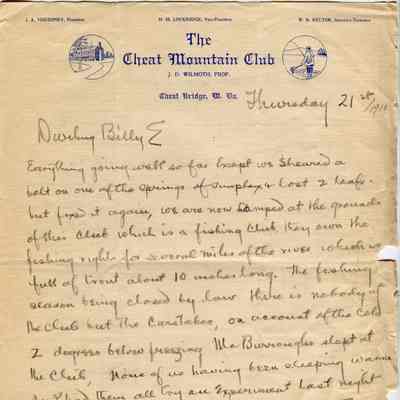 J. A. VIQUESNEY, President
H. M. LOCKRIDGE, Vice-President
W. H. RECTOR, Secretary-Treasurer
The
Cheat Mountain Club
J. D. WILMOTH, PROP.
Cheat Bridge, W. Va.
Thursday 21st/1918
Darling Billy E
Everything going well so far Except we Sheared a
bolt on one of the springs of Simplex & Lost 2 leafs.
but fixed it again, we are now Camped at the grounds
of this Club which is a fishing Club they own the
fishing rights for several miles of the river which is
full of trout about 10 inches long. The fishing
season being closed by law there is nobody at
the Club but the Caretaker, on account of the Cold
2 degrees below freezing Mr Burroughs slept at
the Club, None of us having been sleeping warm
them all try an Experiment last night